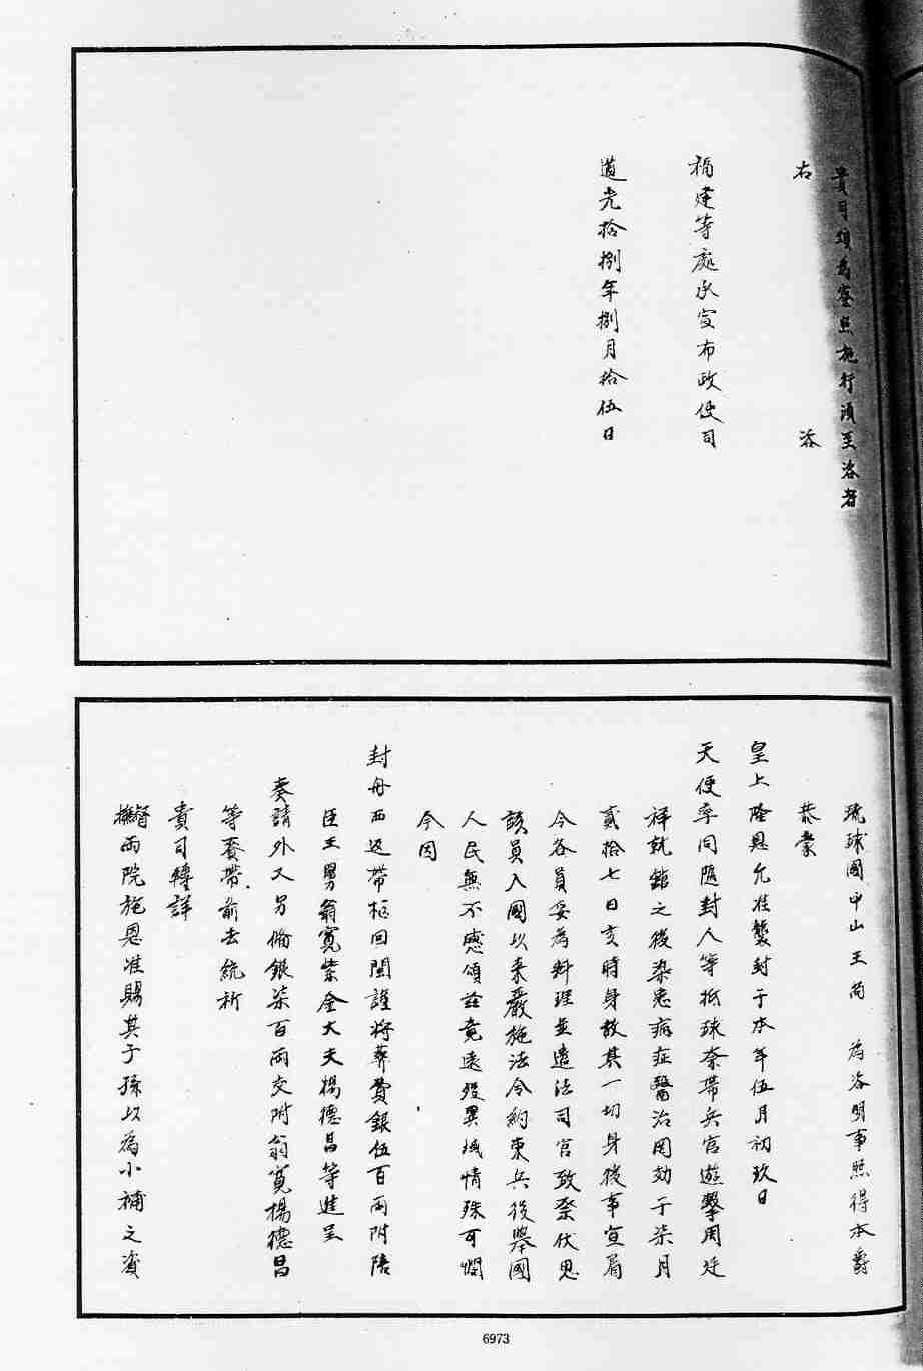 貴司煩為查照施行須至咨者
右　咨
福建等處承宣布政使司
道光拾捌年捌月拾伍日
琉球國中山王尚　為咨明事照得本爵
恭蒙
皇上隆恩允准襲封于本年伍月初玖日
天使率同隨封人等抵球奈帶兵官遊擊周廷
祥就館之後染患病症醫治罔効于柒月
貳拾七日亥時身故其一切身後事宜屬
令各員妥為料理並遣法司官致祭伏思
該員入國以來嚴施法令約束兵役舉國
人民無不感頌茲竟遠歿異域情殊可憫
今因
封舟西返帶柩回閩謹將葬費銀伍百兩附陪
臣王舅翁寬紫金大夫楊德昌等進呈
奏請外又另備銀柒百兩交附翁寬楊德昌
等賫帶前去統祈
貴司轉詳
督撫兩院施恩准賜其子孫以為小補之資
6973